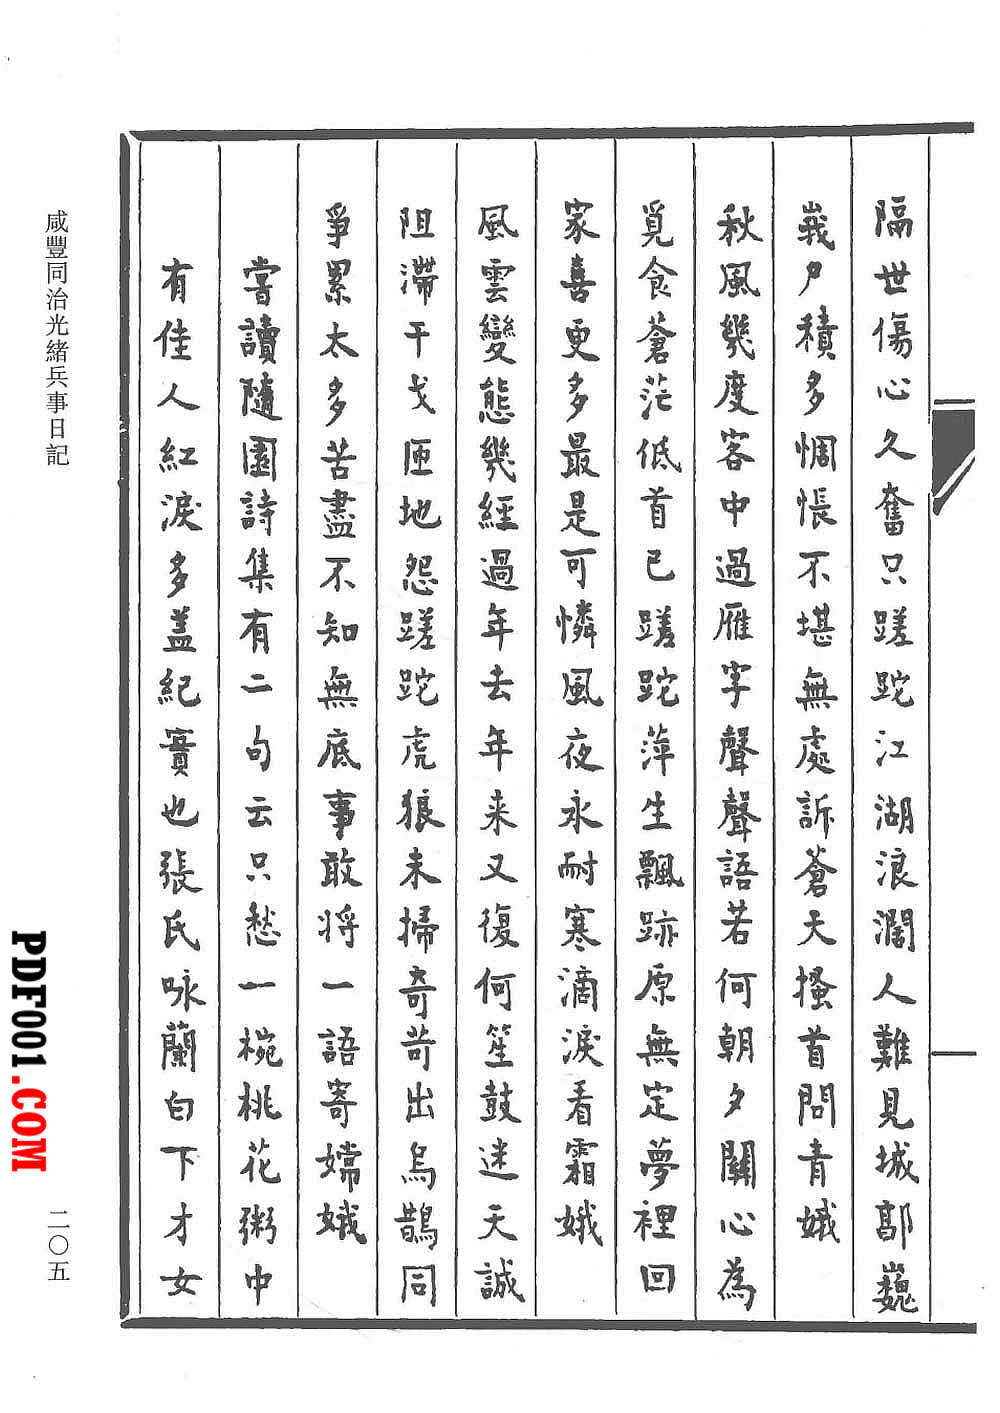 隔世傷心久奮只蹉跎江湖浪濶人難見城郭巍
峩尸積多惆悵不堪無處訴蒼天搔首問青娥
秋風幾度客中過雁字聲聲語若何朝夕關心為
覓食蒼茫低首已蹉跎萍生飄跡原無定夢裡回
家喜更多最是可憐風夜永耐寒滴淚看霜娥
風雲變態幾經過年去年来又復何笙鼓迷天誠
阻滯干戈匝地怨蹉跎虎狼未掃奇苛出烏鵲同
爭累太多苦盡不知無底事敢将一語寄嫦娥
嘗讀隨園詩集有二句云只愁一椀桃花粥中
有佳人紅淚多蓋紀實也張氏咏蘭白下才女
咸豐同治光緒兵事日記
二〇五
PDF001.COM